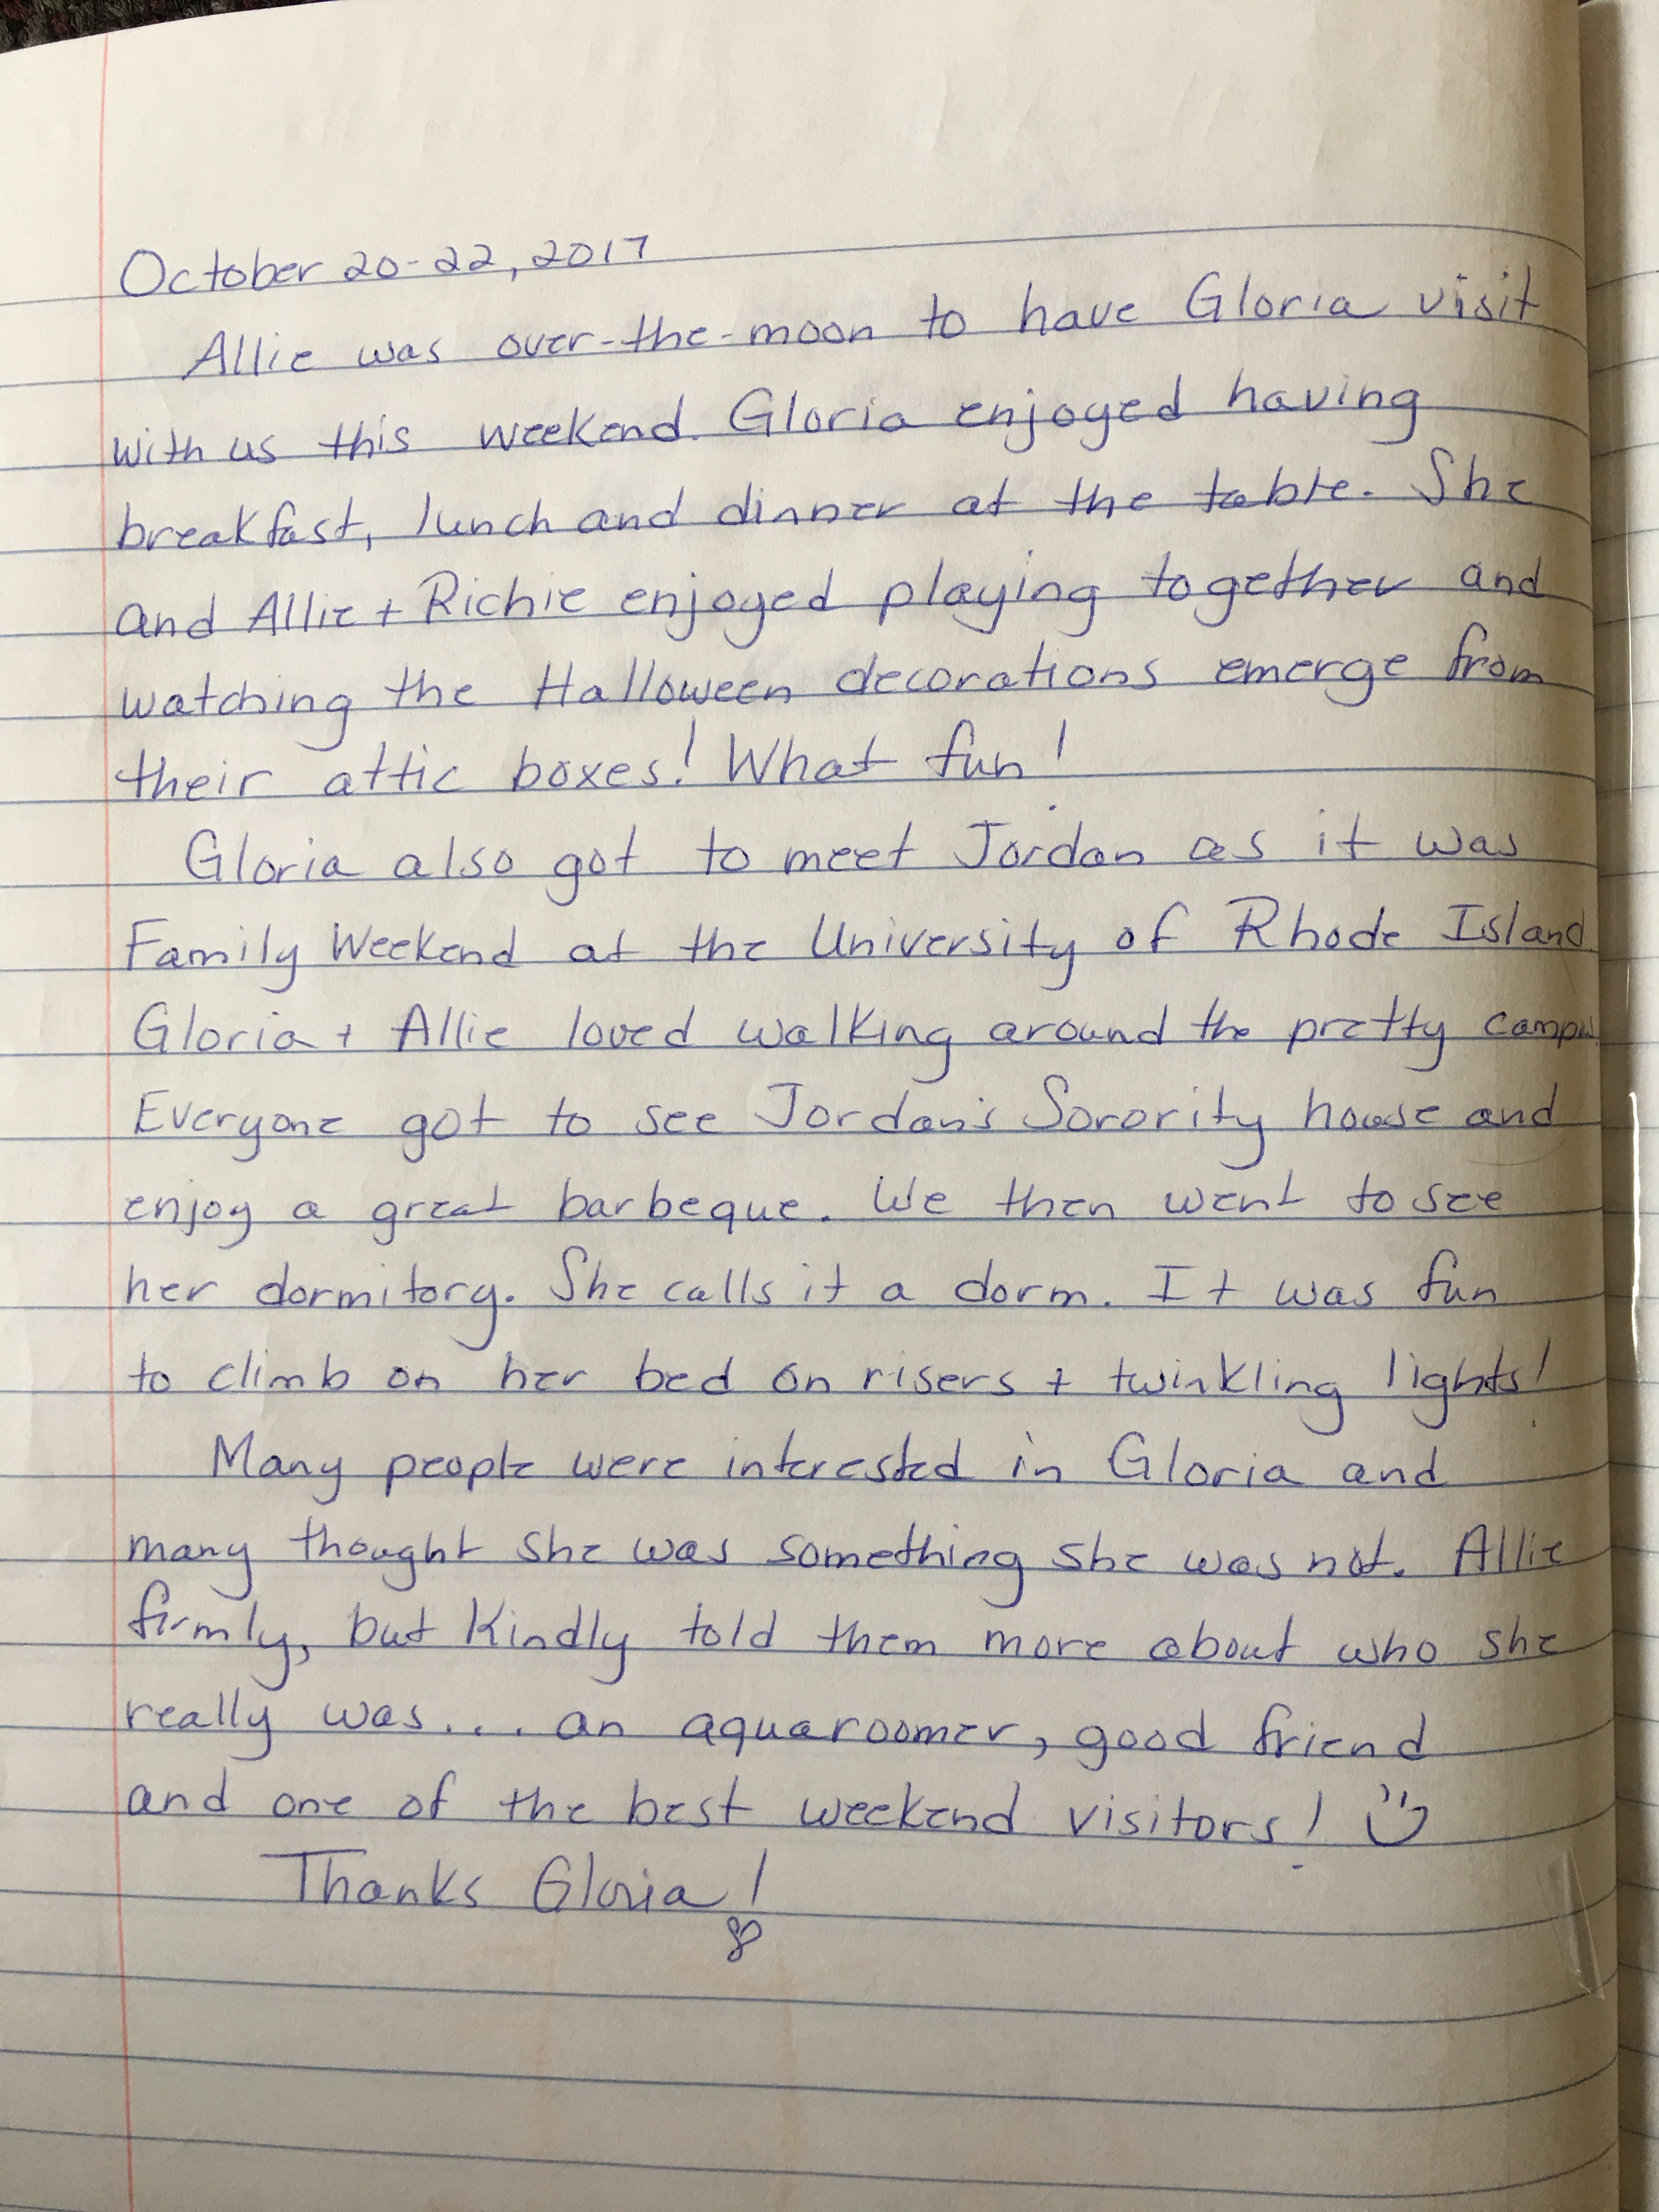 October 20-22, 2017
Allie was over-the-moon to have Gloria visit
with us this weekend. Gloria enjoyed having
breakfast, lunch and dinner at the table. She
and Allie + Richie enjoyed playing together and
watching the Halloween decorations emerge from
their attic boxes! What fun!
Gloria also got to meet Jordan as it was
Family Weekend at the University of Rhode Island.
Gloria + Allie loved walking around the pretty campus
Everyone got to see Jordan's Sorority house and
enjoy a great barbeque. We then went to see
her dormitory. She calls it a dorm. It was fun
to climb on her bed on risers + twinkling lights!
Many people were interested in Gloria and
many thought she was something she was not. Allie
firmly, but kindly told them more about who she
really was.... an aquaroomer, good friend
and one of the best weekend visitors!
Thanks Gloria!